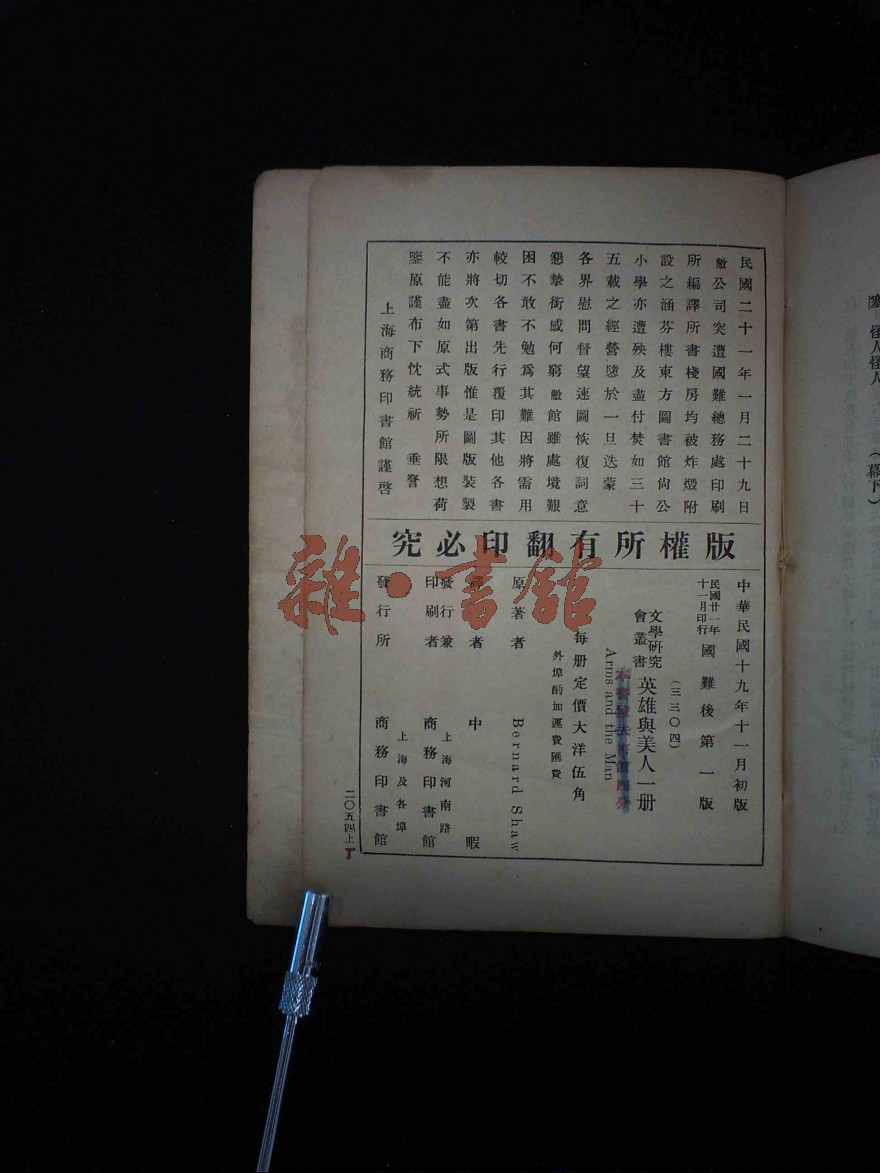 民國二十一年一月二十九日
敝公司突遭國難總務處印刷
所編譯所書棧房均被炸燬附
設之涵芬樓東方圖書館尙公
小學亦遭殃及盡付焚如三十
五載之經營隳於一旦迭蒙
各界慰問督望速圖恢復詞意
懇摯銜感何窮敝館雖處境艱
困不敢不勉爲其難因將需用
較切各書先行覆印其他各書
亦將次第出版惟是圖版裝製
不能盡如原式事勢所限想荷
鑒原謹布下忱統祈 垂詧
上海商務印書館謹啓
版權所有翻印必究
中華民國十九年十一月初版
民國廿一年十一月印行 國難後第一版
(三三〇四)
文學研究會叢書 英雄與美人一册
Arms and the Man
每册定價大洋伍角
外埠酌加運費匯費
原著者 Bernard Shaw
者 中暇
發行兼印刷者 上海河南路 商務印書館
發行所 上海及各埠 商務印書館
二〇五四上
丁
雜·書館
怪人怪人
(幕下)